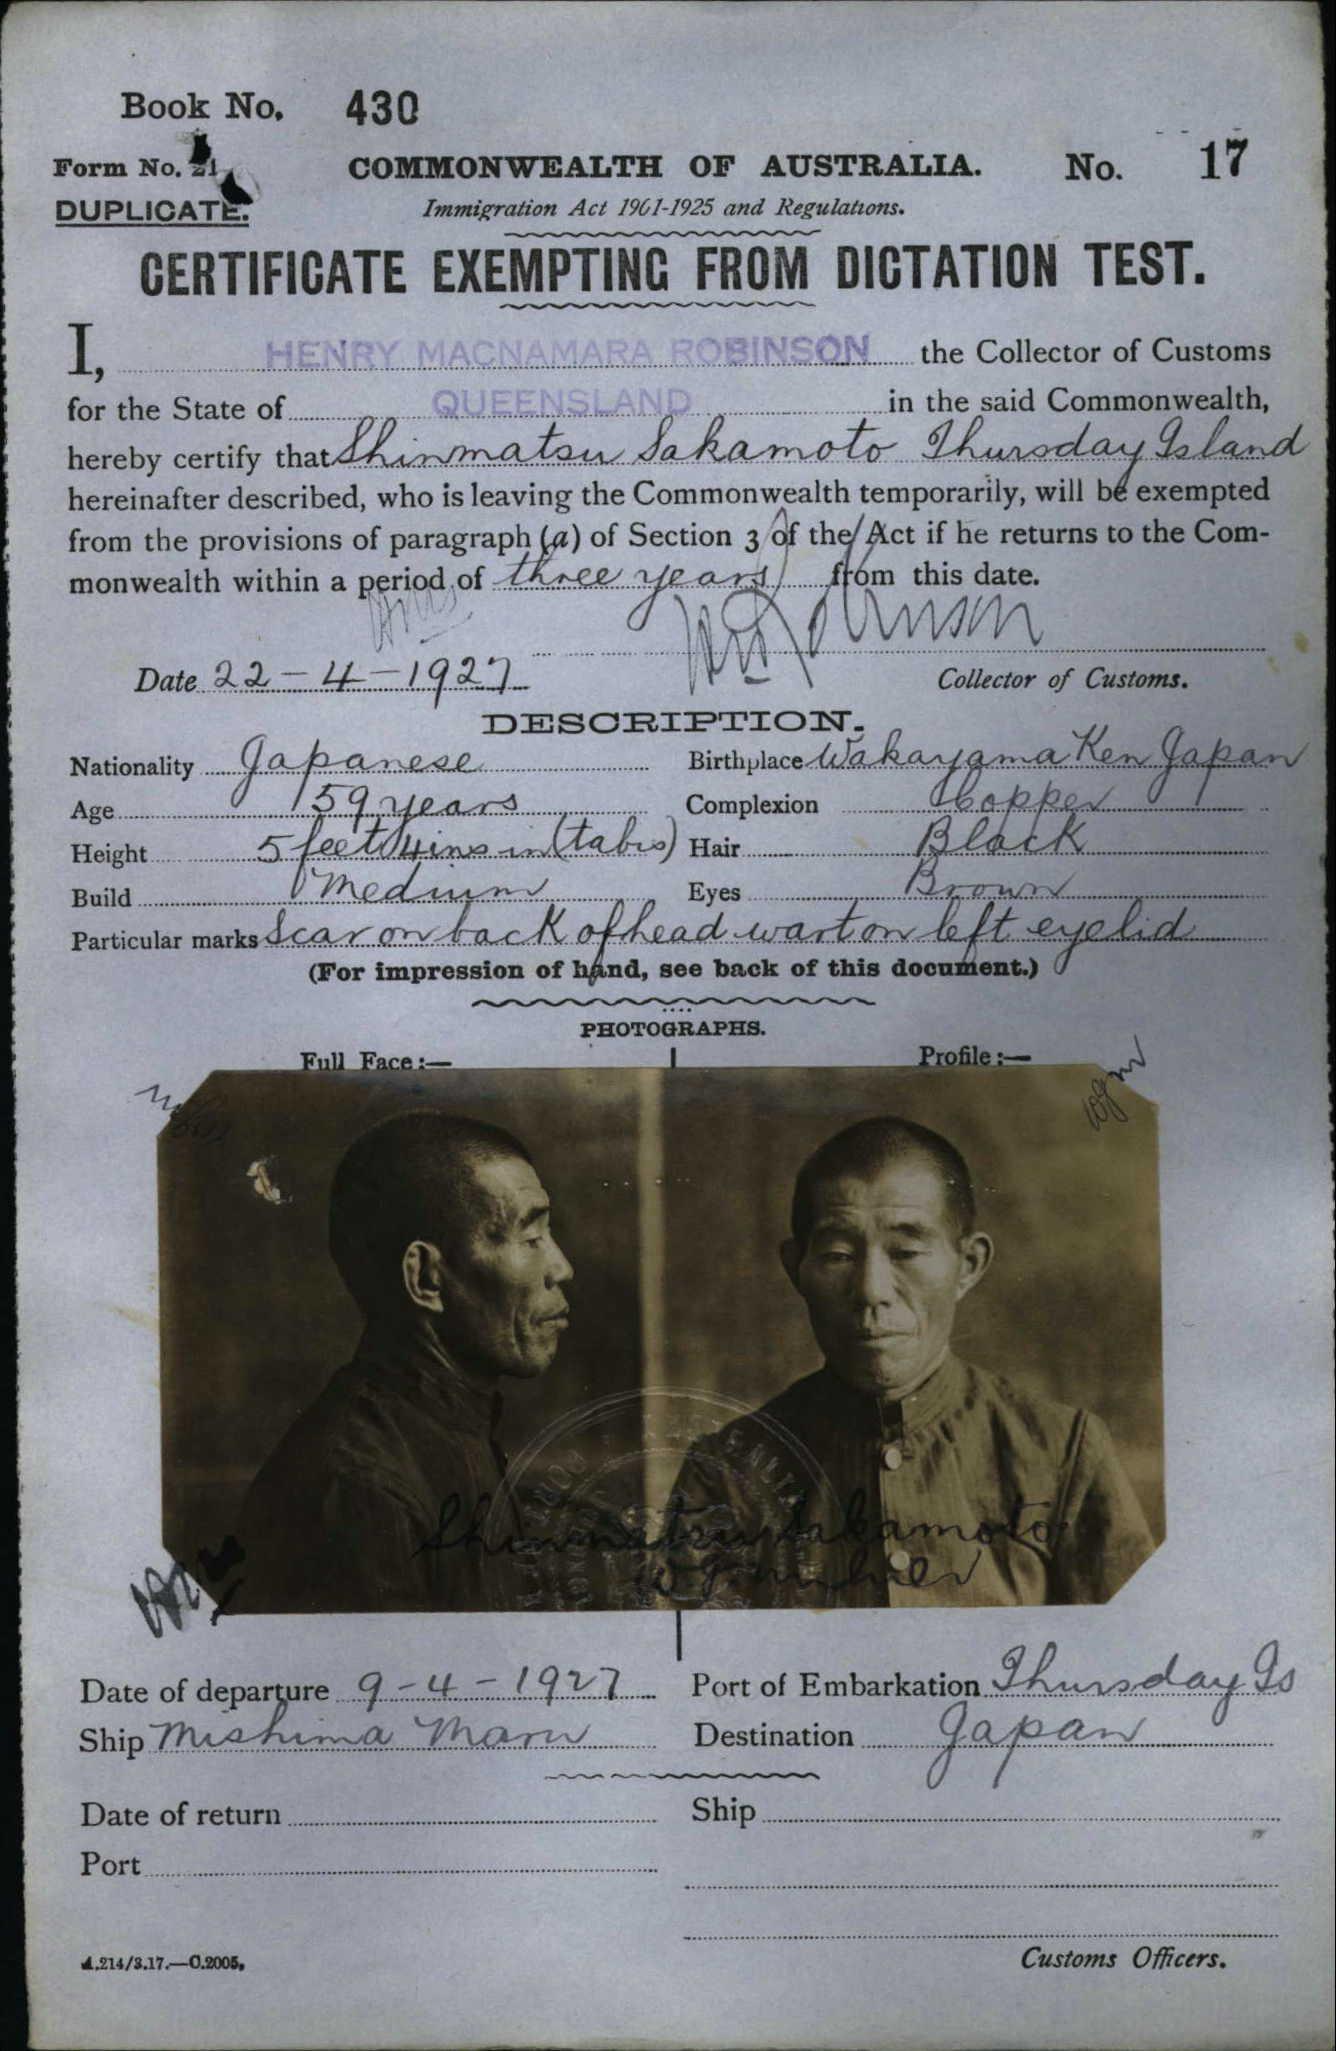 Book No. 430
Form No. 21
COMMONWEALTH OF AUSTRALIA. No. 17
DUPLICATE.
Immigration Act 1901-1925 and Regulations.
CERTIFICATE EXEMPTING FROM DICTATION TEST.
I, HENRY MACNAMARA ROBINSON the Collector of Customs
for the State of QUEENSLAND in the said Commonwealth,
hereby certify that Shinmatsu Sakamoto Thursday Island
hereinafter described, who is leaving the Commonwealth temporarily, will be exempted
from the provisions of paragraph (a) of Section 3 of the Act if he returns to the Com-
monwealth within a period of three years from this date.
Robinson
Date 22-4-1927 Collector of Customs.
DESCRIPTION.
Nationality Japanese Birthplace Wakayama Ken Japan
Age 59 years Complexion Copper
Height 5 feet 4 ins in (tabis) Hair Black
Build Medium Eyes Brown
Particular marks Scar on back of head wart on left eyelid
(For impression of hand, see back of this document.)
PHOTOGRAPHS.
Full Face:— Profile:—
Shinmatsu Sakamoto
Date of departure 9-4-1927 Port of Embarkation Thursday Is
Ship Mishima Maru Destination Japan
Date of return Ship
Port
A.214/3.17.—C.2005.
Customs Officers.